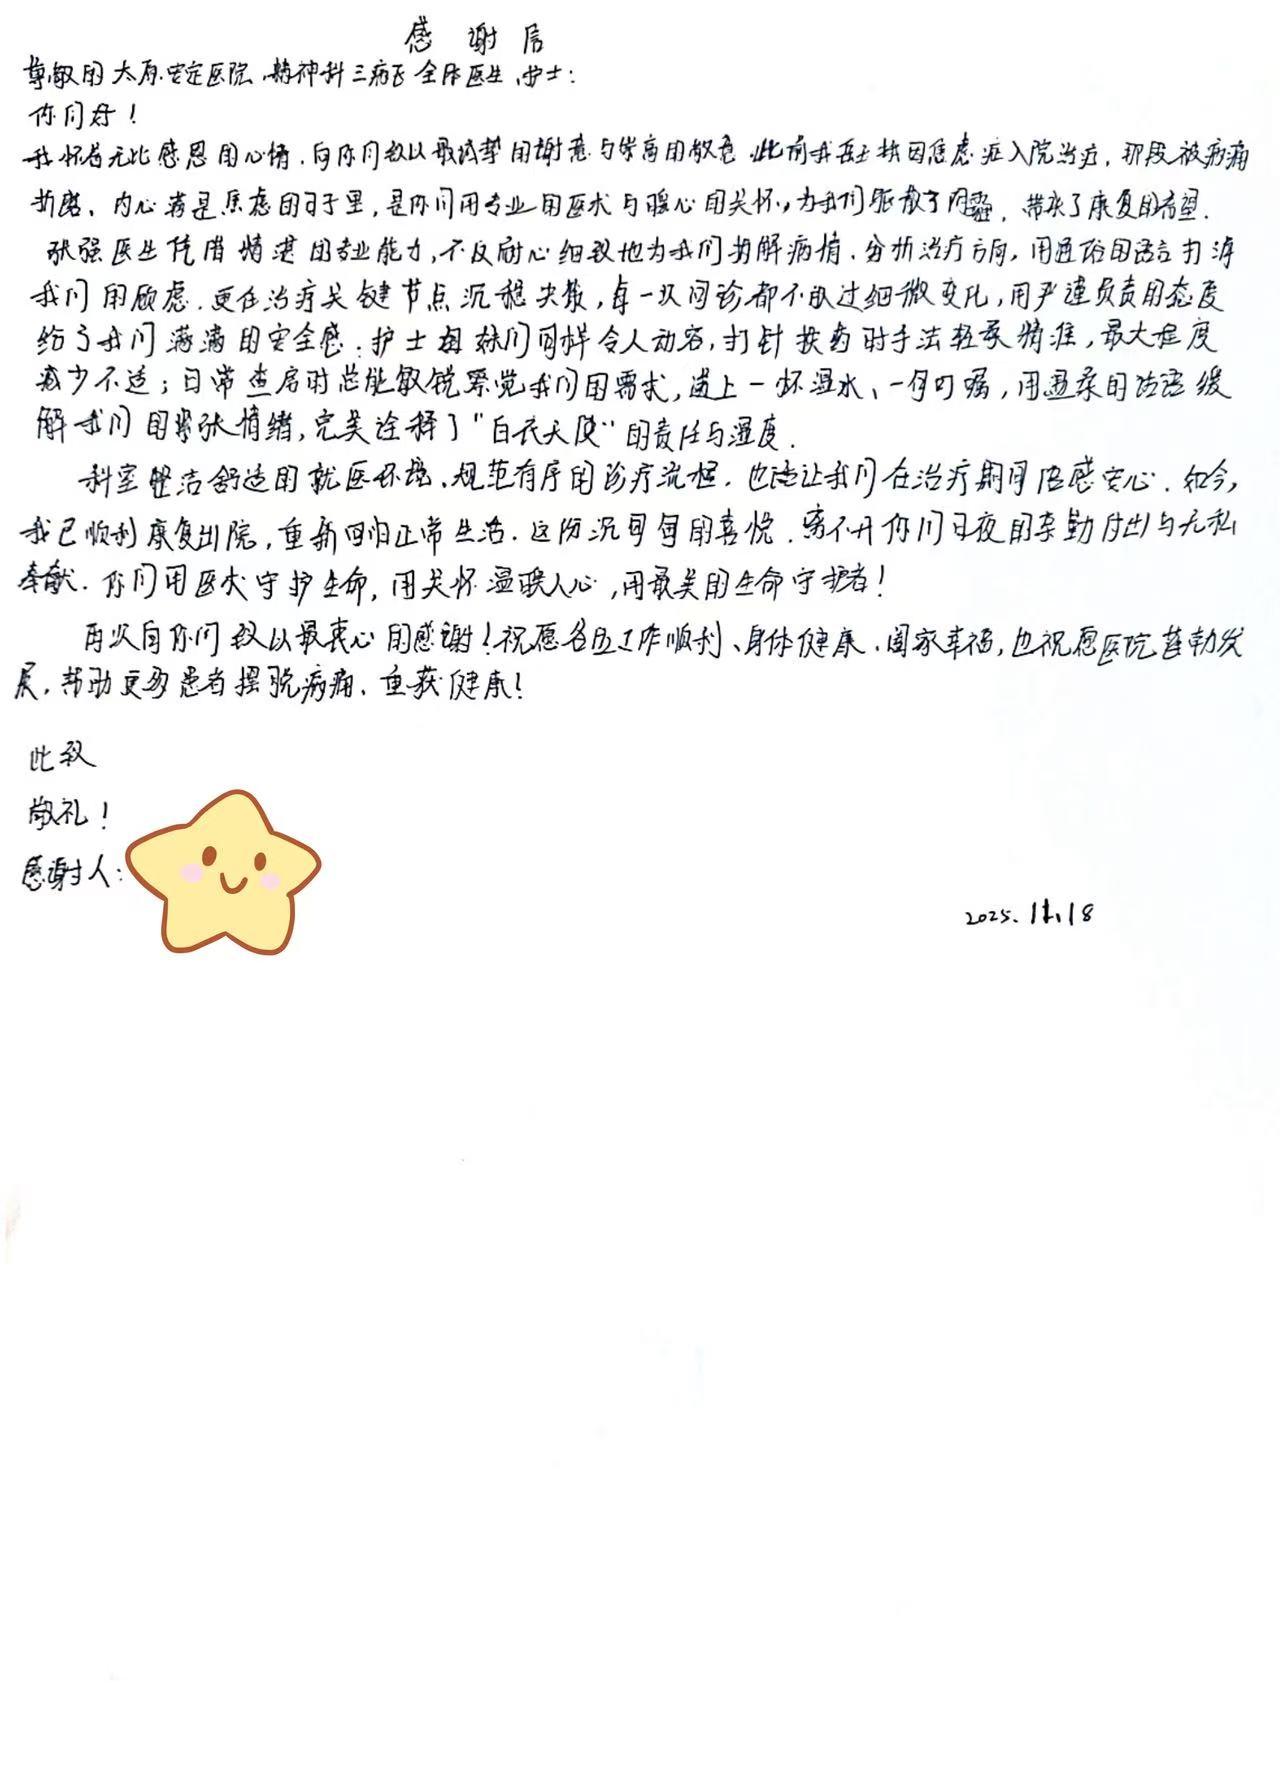 感谢信
尊敬的太原安定医院、精神科三病区全体医生、护士：
你们好！
我怀着无比感恩的心情，向你们致以最诚挚的谢意与崇高的敬意，此前我因焦虑症入院治疗，那段被病痛
折磨、内心满是焦虑的日子里，是你们用专业的医术与暖心的关怀，为我们驱散了阴霾，带来了康复的希望．
张强医生凭借精湛的专业能力，不仅耐心细致地为我们讲解病情、分析治疗方向，用通俗的语言打消
我们的顾虑．更在治疗关键节点沉稳决散，每一次问诊都不放过细微变化，用严谨负责的态度
给了我们满满的安全感；护士姐妹们同样令人动容，打针换药时手法轻柔精准，最大程度
减少不适；日常查房时总能敏锐察觉我们的需求，递上一杯温水、一句叮嘱，用温柔的话语缓
解我们的紧张情绪，完美诠释了“白衣天使”的责任与温度．
科室整洁舒适的就医环境、规范有序的诊疗流程，也让我们在治疗期间倍感安心．如今，
我已顺利康复出院，重新回归正常生活．这份沉甸甸的喜悦，离不开你们日夜的辛勤付出与无私
奉献．你们用医术守护生命，用关怀温暖人心，用最美的生命守护者！
再次向你们致以最衷心的感谢！祝愿各位工作顺利、身体健康、阖家幸福，也祝愿医院蓬勃发
展，帮助更多患者摆脱病痛、重获健康！
此致
敬礼！
感谢人：
2025.11.18